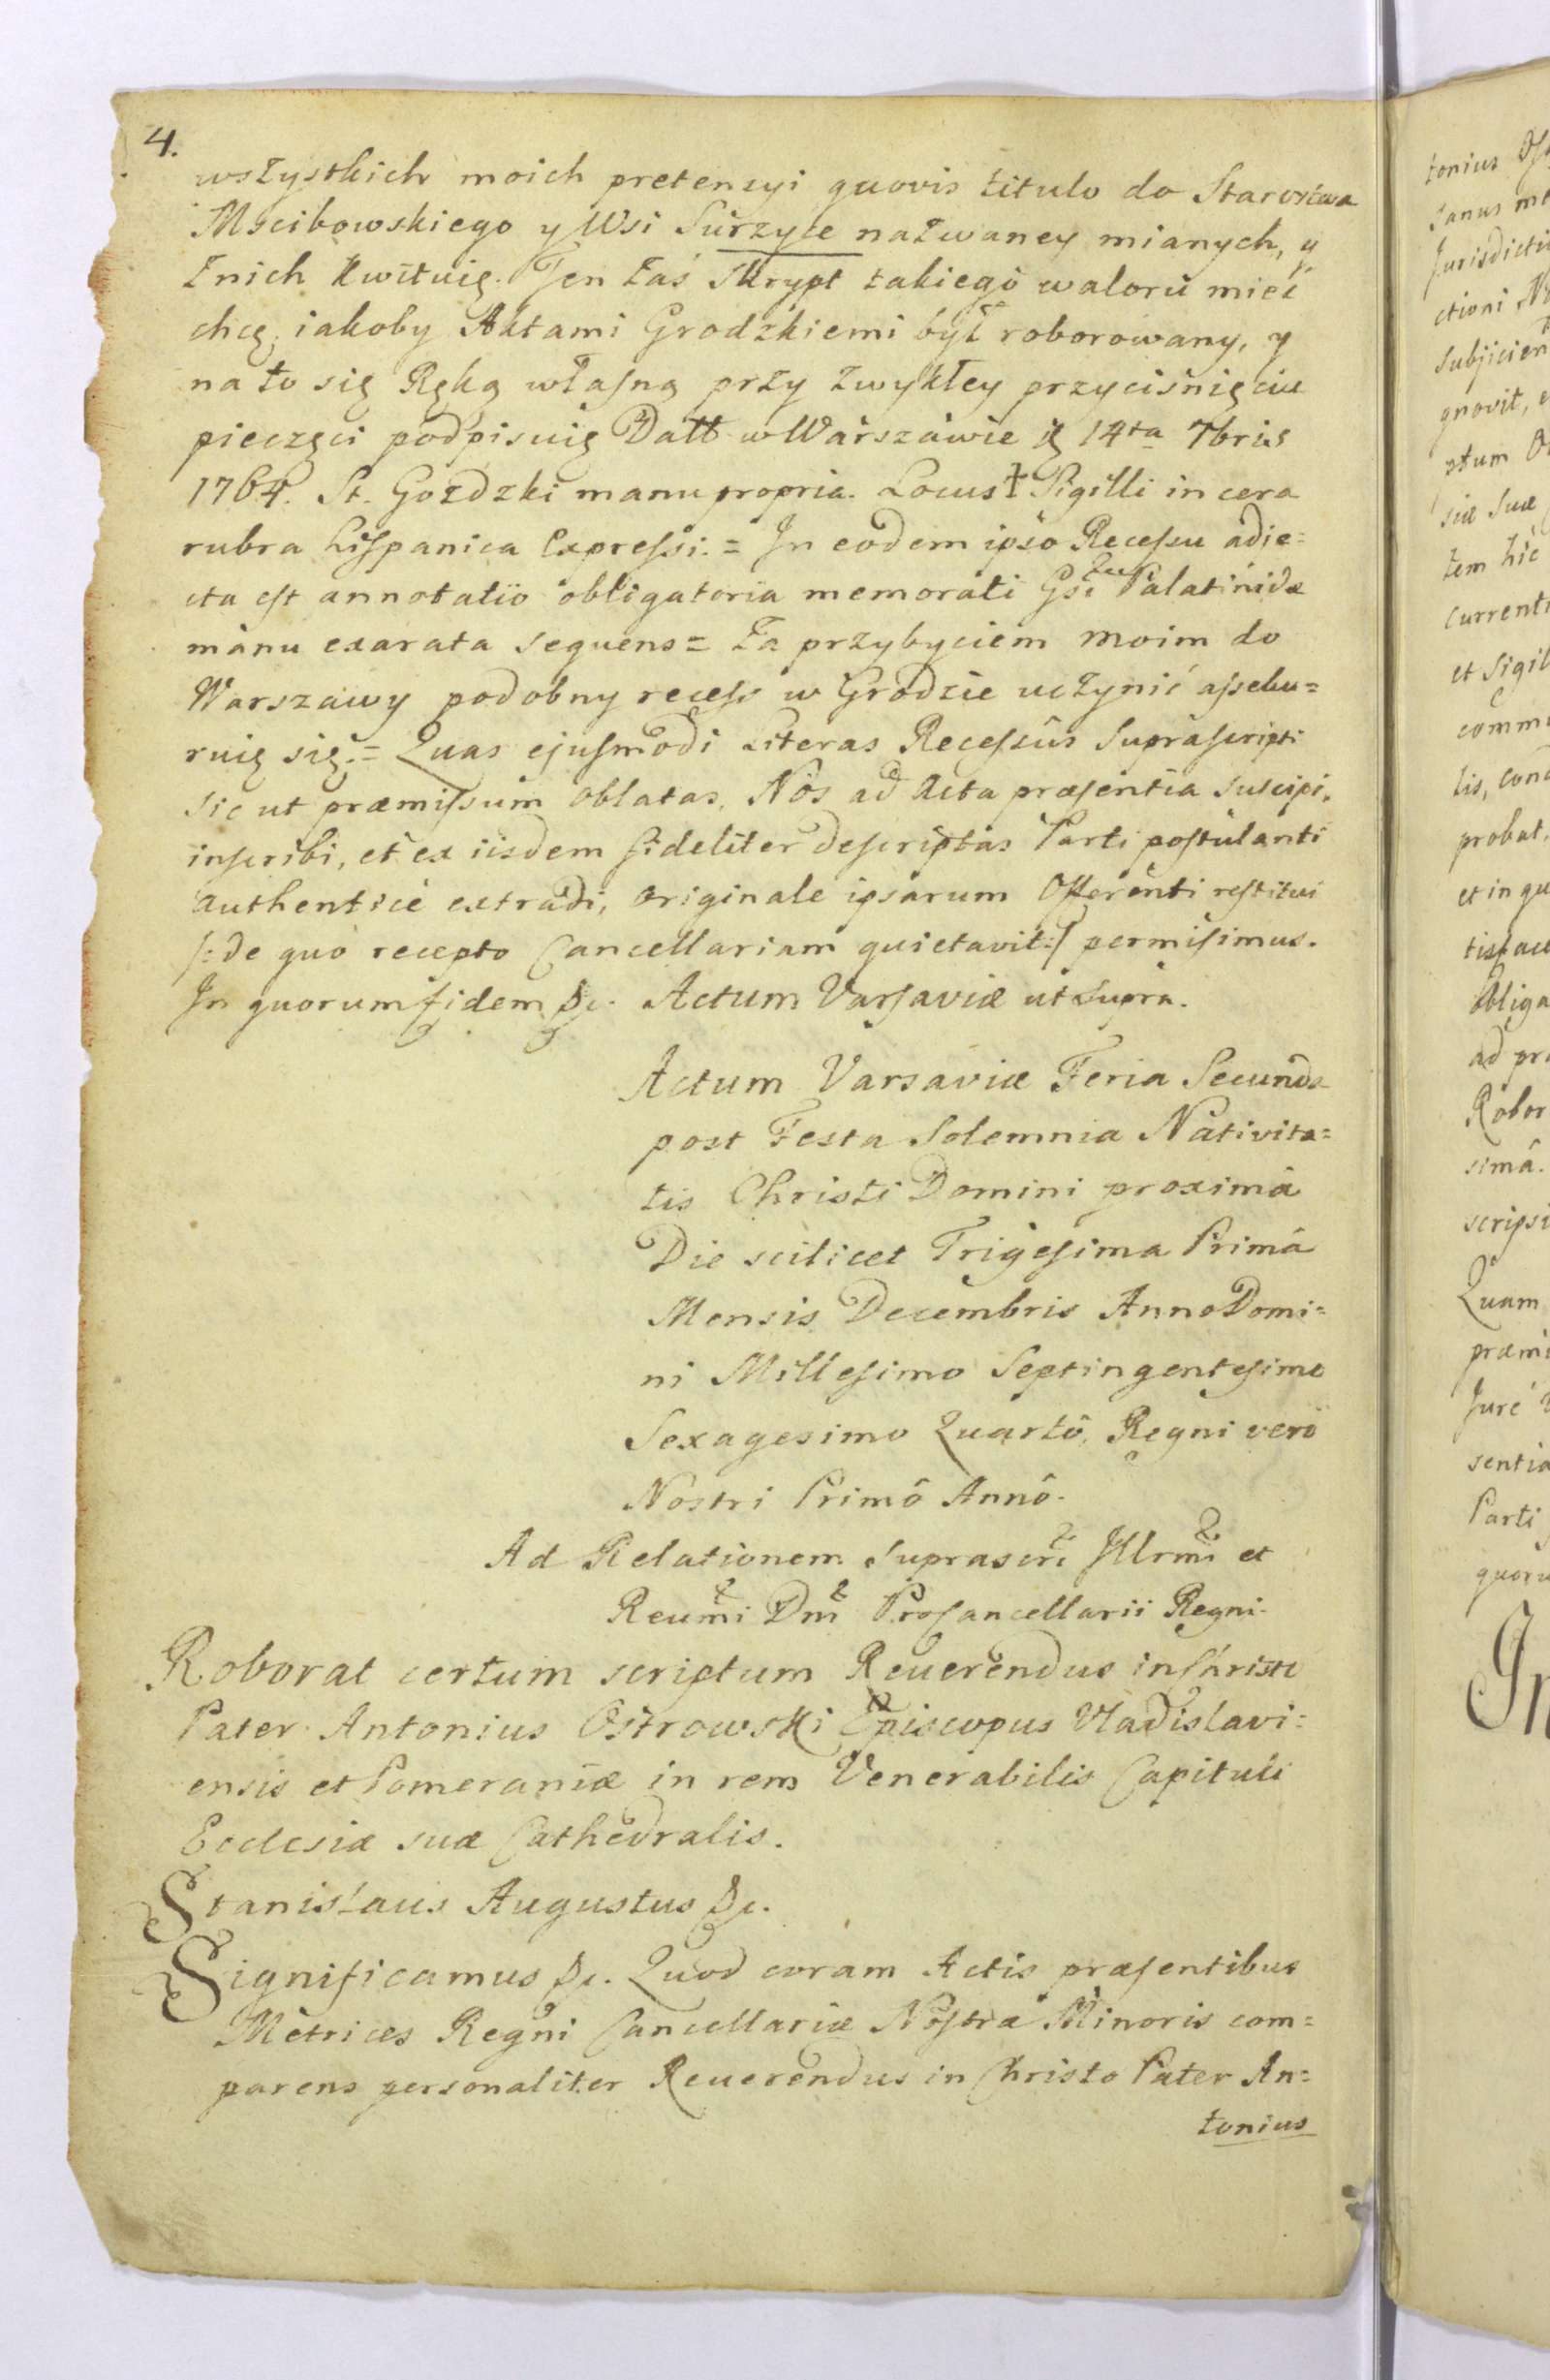 4.
wszystkich moich pretensyi quovis titulo do Starostwa
Mscibowskiego y Wsi Surzyce nazwaney mianych, y
z nich kwituię. Ten zaś Skrypt takiego waloru mieć
chcę, iakoby Aktami Grodzkiemi był roborowany, y
na to się Ręką własną przy zwykłey przyciśnięciu
pieczęci podpisuię Datt w Warszawie 14ta 7bris
1764. St. Gozdzki manu propria. Locus † Sigilli in cera
rubra hispanica Expressi. = In eodem ipso Recessu adie=
cta est annotatio obligatoria memorati Gsi Palatinidæ
manu exarata sequens = Za przybyciem moim do
Warszawy podobny recess w Grodzie uczynić asseku=
ruię się. = Quas ejusmodi Literas Recessûs Suprascripti
sic ut præmissum oblatas, Nos ad Acta præsentia suscipi,
inscribi, et ex iisdem fideliter descriptas Parti postulanti
authenticè extradi, originale ipsarum Offerenti restitui
/: de quo recepto Cancellariam quietavit :/ permisimus.
In quorum fidem &c. Actum Varsaviæ ut supra.
Actum Varsaviæ Feria Secunda
post Festa Solemnia Nativita=
tis Christi Domini proximâ
Die scilicet Trigesima Primâ
Mensis Decembris Anno Domi=
ni Millesimo Septingentesimo
Sexagesimo Quartô, Regni vero
Nostri Primô Annô.
Ad Relationem suprascri Illrmi et
Reumi Dni ProCancellarii Regni.
Roborat certum scriptum Reuerendus in Christo
Pater Antonius Ostrowski Episcopus Vladislavi=
ensis et Pomeraniæ in rem Venerabilis Capituli
Ecclesiæ suæ Cathedralis.
Stanislaus Augustus &c.
Significamus &c. Quod coram Actis præsentibus
Metrices Regni Cancellariæ Nostræ Minoris com=
parens personaliter Reuerendus in Christo Pater An=
tonius
tonius
Juris
ctioni
gnovit,
siæ suæ
tem hic
et Sigil
tis,
probat,
et in qu
Obliga
ad
Robor
simâ.
scripsi
Quam
præmi
sentia
Parti
quoru
In